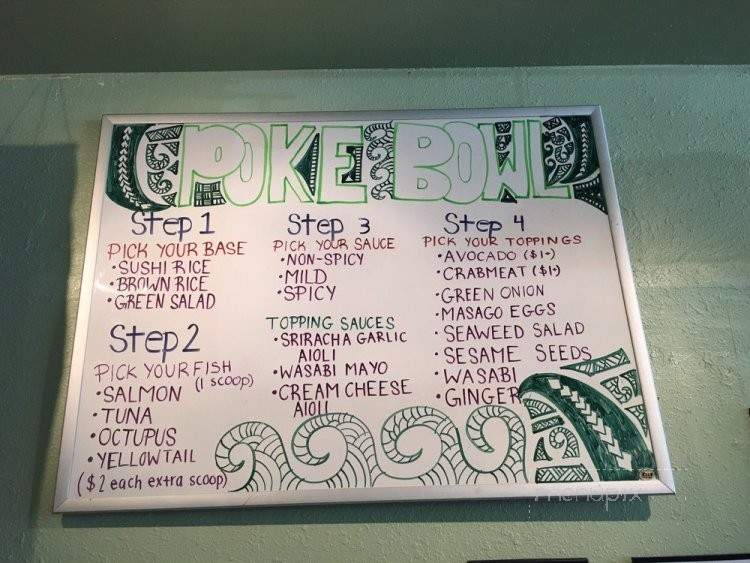 POKE BOWL
Step 1
PICK YOUR BASE
• SUSHI RICE
• BROWN RICE
• GREEN SALAD
Step 2
PICK YOUR FISH
(1 scoop)
• SALMON
• TUNA
• OCTUPUS
• YELLOWTAIL
($2 each extra scoop)
Step 3
PICK YOUR SAUCE
• NON-SPICY
• MILD
• SPICY
TOPPING SAUCES
• SRIRACHA GARLIC
AIOLI
• WASABI MAYO
• CREAM CHEESE
AIOLI
Step 4
PICK YOUR TOPPINGS
• AVOCADO ($1-)
• CRABMEAT ($1-)
• GREEN ONION
• MASAGO EGGS
• SEAWEED SALAD
• SESAME SEEDS
• WASABI
• GINGER
menupix